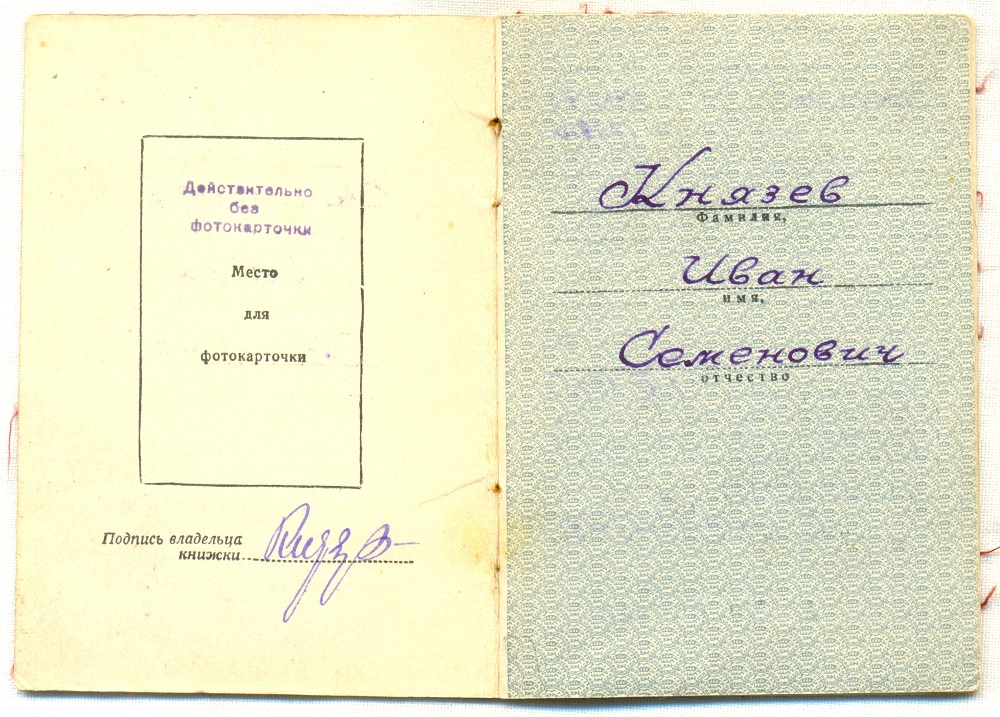 Действительно
без
фотокарточки
Место
для
фотокарточки
Подпись владельца
книжки
Князев
Князев
Фамилия,
Иван
имя,
Семенович
отчество